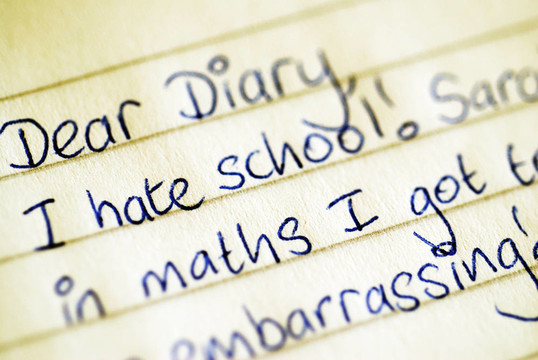 Dear Diary,
I hate school!
in maths I got
embarrassing